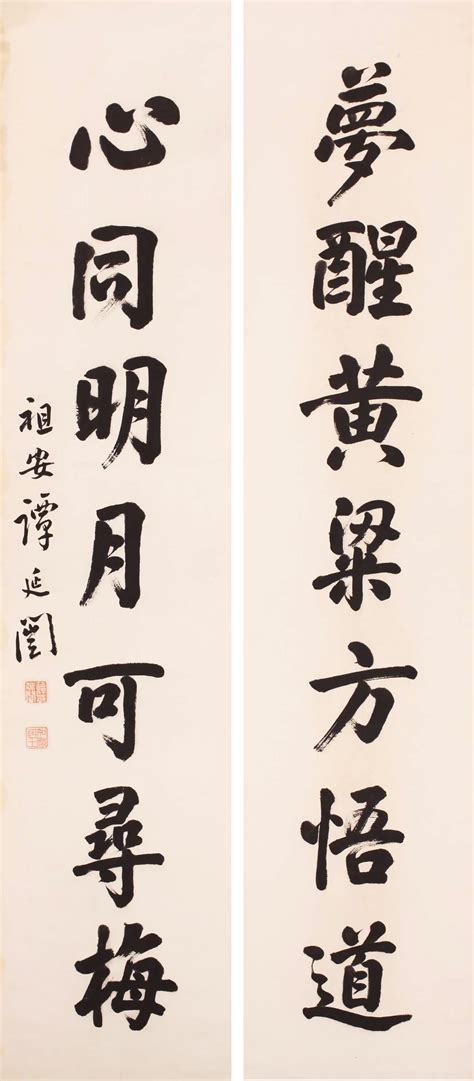 夢醒黄粱方悟道
心同明月可尋梅
祖安譚延闓